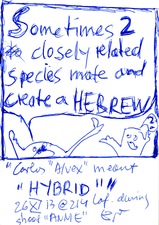 Sometimes 2
closely related
species mate and
create a HEBREW!
"Carlos "Alvex" meant
"HYBRID""
26 XI 13 @ 214 Laf. during
shoot "ANME"